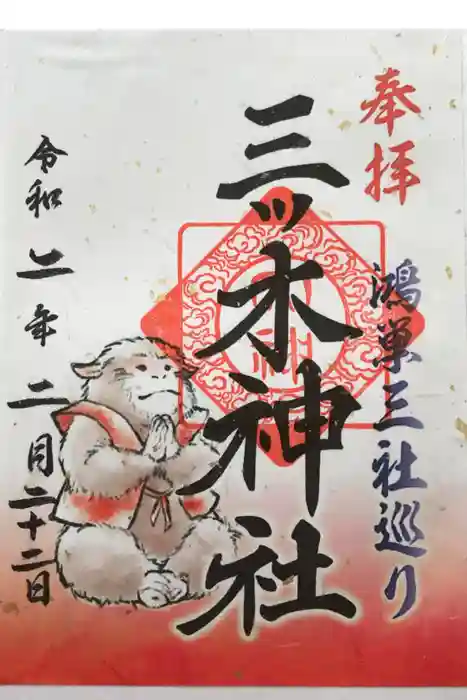 奉拝
鴻巣三社巡り
三ッ木神社
令和二年二月二十二日